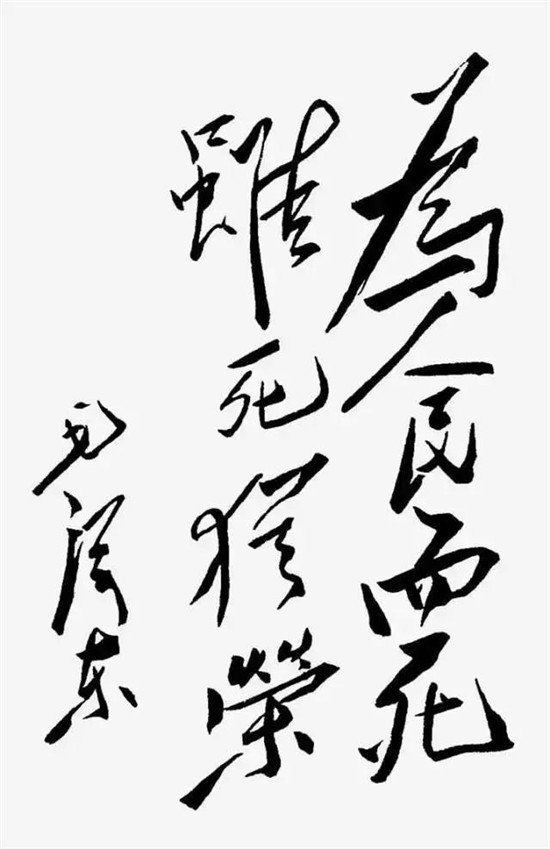 為人民而死
雖死猶榮
毛泽东